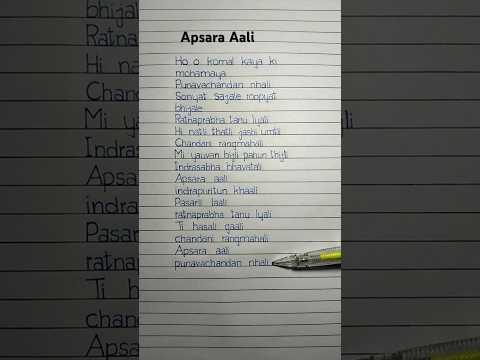 Apsara Aali
Ho o komal kaya ki
mohamaya
Punavachandan nhali
Sonyat sajale roopyat
bhijale
Ratnaprabha tanu lyali
Hi natli thatli jashi umtli
Chandani rangmahali
Mi yauvan bijli pahun thijli
Indrasabha bhavatali
Apsara aali
indrapuritun khaali
Pasarli laali
ratnaprabha tanu lyali
Ti hasali gaali
chandani rangmahali
Apsara aali
punavachandan nhali